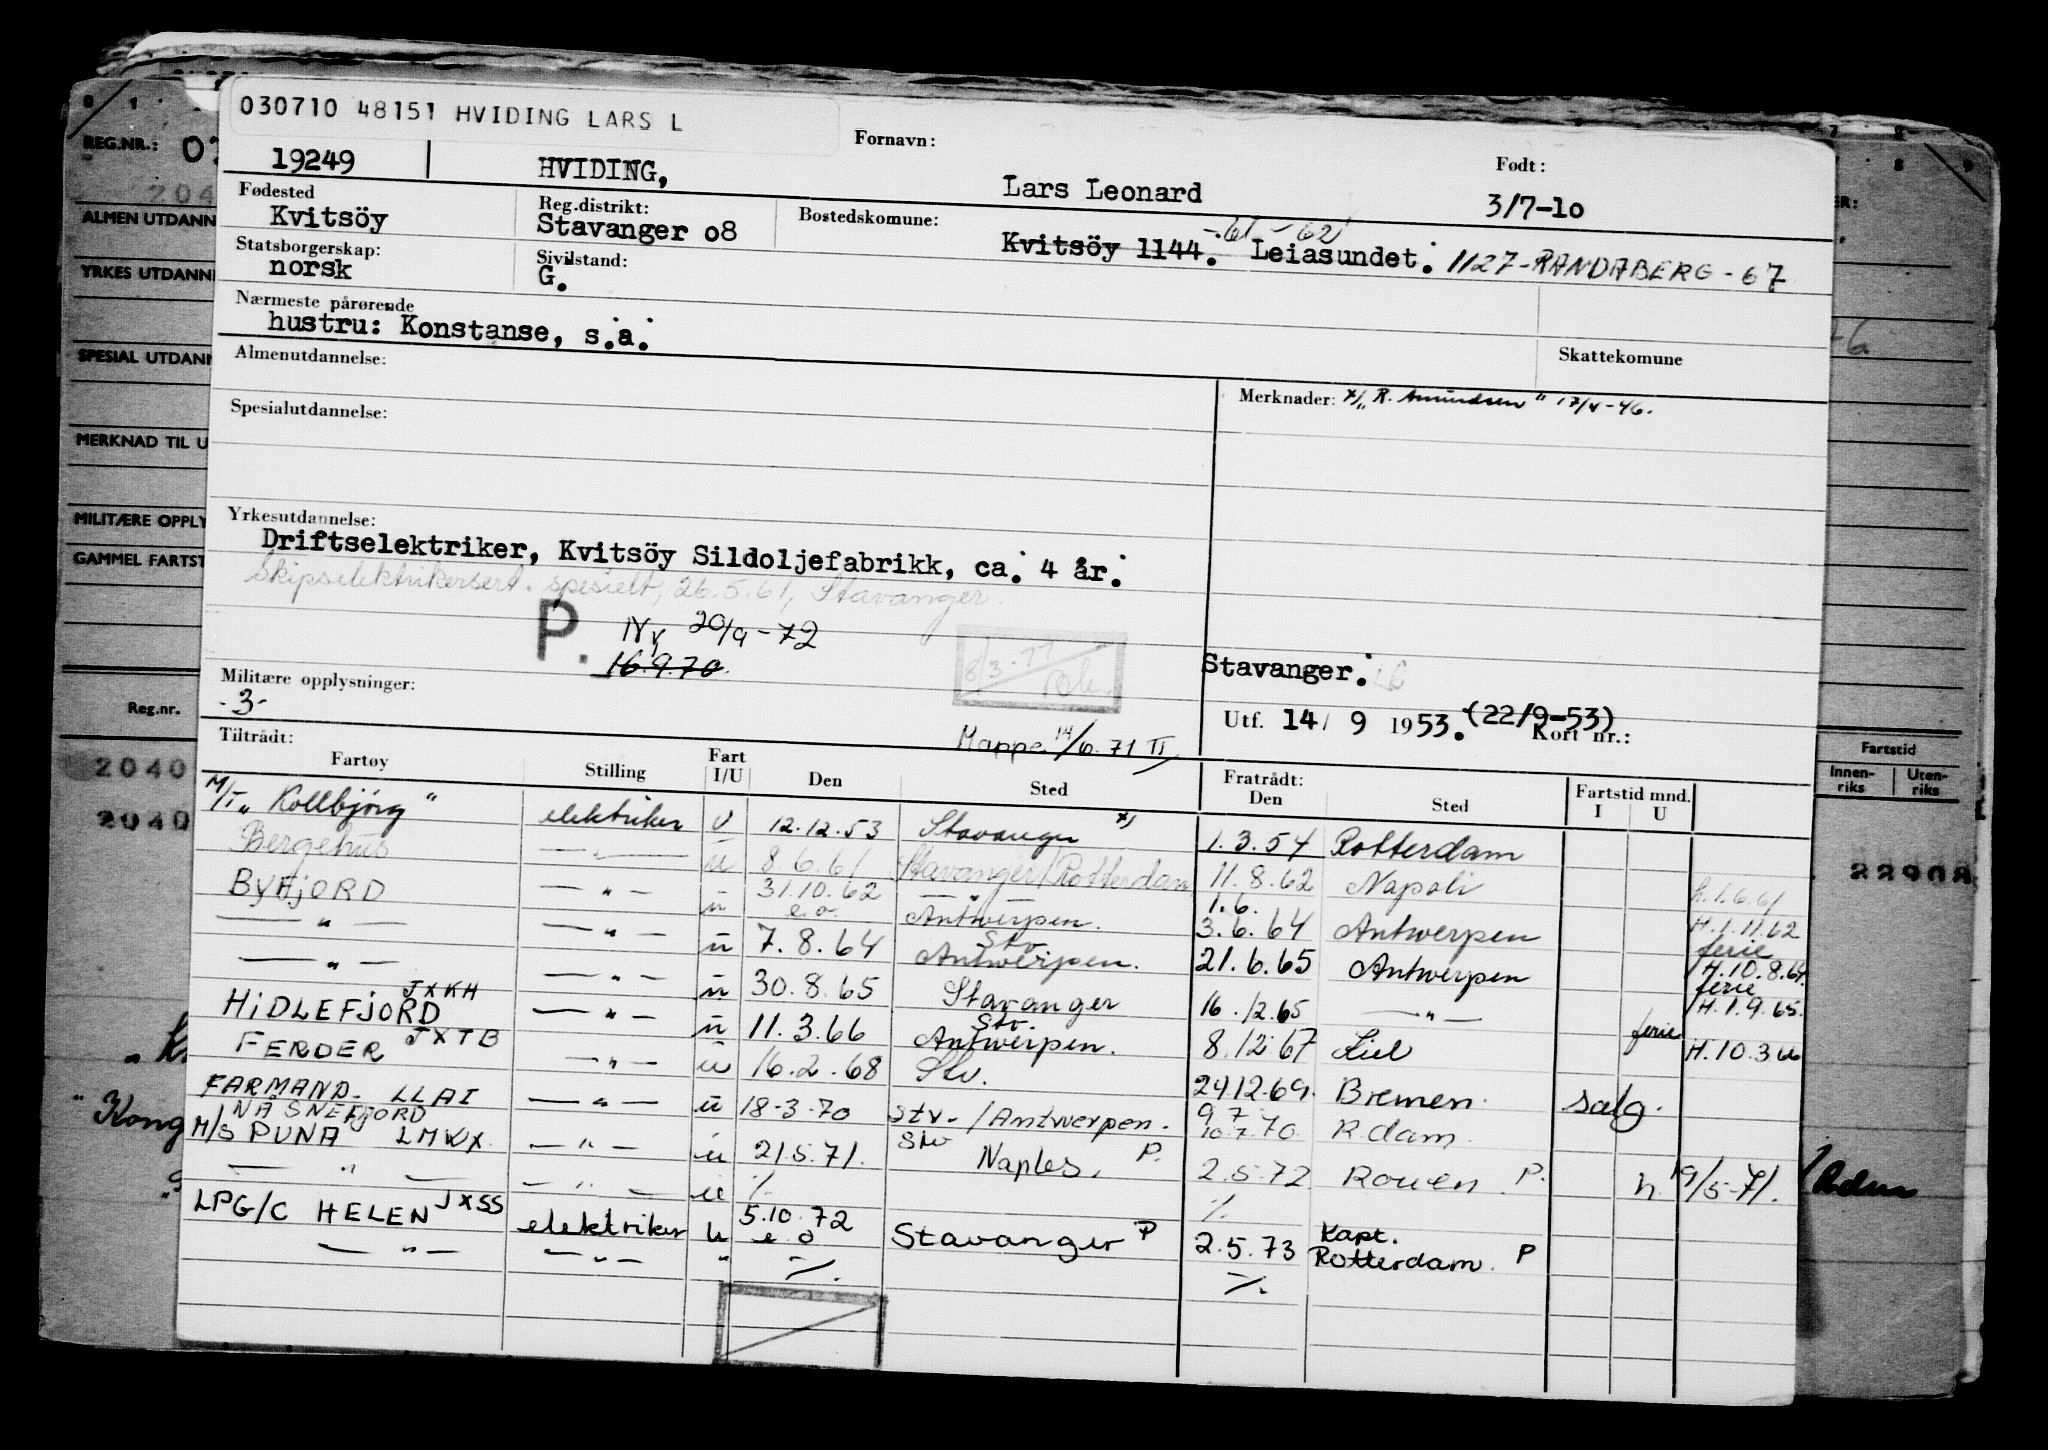 030710 48151 HVIDING LARS L
Fornavn: Født:
19249 HVIDING, Lars Leonard 3/7-1o
Fødested Reg.distrikt: Bostedskomune:
Kvitsöy Stavanger o8 Kvitsöy 1144. -61 - 62 Leiasundet. 1127-RANDABERG-67
Statsborgerskap: Sivilstand:
norsk G.
Nærmeste pårørende
hustru: Konstanse, s.a.
Almenutdannelse: Skattekomune
Merknader: x/ „R. Amundsen" 17/4-46.
Spesialutdannelse:
Yrkesutdannelse:
Driftselektriker, Kvitsöy Sildoljefabrikk, ca. 4 år.
Skipselektrikersert. spesielt, 26.5.61, Stavanger.
P. Ny 20/9-72
16.9.70.
8/3-77
Stavanger.
Militære opplysninger:
-3-
Utf. 14/ 9 1953. (22/9-53)
Kort nr.:
Mappe 14/6.71 II
Tiltrådt: Fratrådt:
Fartøy Stilling Fart I/U Den Sted Den Sted Fartstid mnd. I U
M/T „Kollbjörg" elektriker U 12.12.53 Stavanger x) 1.3.54 Rotterdam
Bergehus — " — u 8.6.61 Stavanger/Rotterdam 11.8.62 Napoli h.1.6.61
ByFjORD — " — u 31.10.62 e.o. — " — Antwerpen. 1.6. 3.6.64 Antwerpen H.1.11.62 ferie
— " — — " — u 7.8.64 Stv. Antwerpen. 21.6.65 Antwerpen H.10.8.64. ferie
— " — — " — u 30.8.65 Stavanger 16.12.65 — " — H.1.9.65.
HiDLEFjORD JXKH — " — u 11.3.66 Stv. Antwerpen. 8.12.67 Kiel ferie H.10.3
FERDER JXTB — " — u 16.2.68 Stv. 24.12.69. Bremen. salg.
FARMAND. LLAI — " — u 18-3-70 Stv-/Antwerpen. 9 7 10.7.70. R.dam.
NÅSNEFJORD
M/S PUNA LMWX. — " — u 21.5.71. Stv Naples. P. 2.5.72 Rouen. P. h 19/5-71.
— " — — " — u ./. ./.
LPG/C HELEN JXSS elektriker u 5.10.72 e.o Stavanger P 2.5.73 Kapt. Rotterdam. P
— " — — " — " ./. ./.
REG.NR.:
ALMEN UTDANN
YRKES UTDANN
SPESIAL UTDANN
MERKNAD TIL U
MILITÆRE OPPLY
GAMMEL FARTST
Reg.nr.
2040
2040
Kong
Fartstid
Innenriks Utenriks
22908